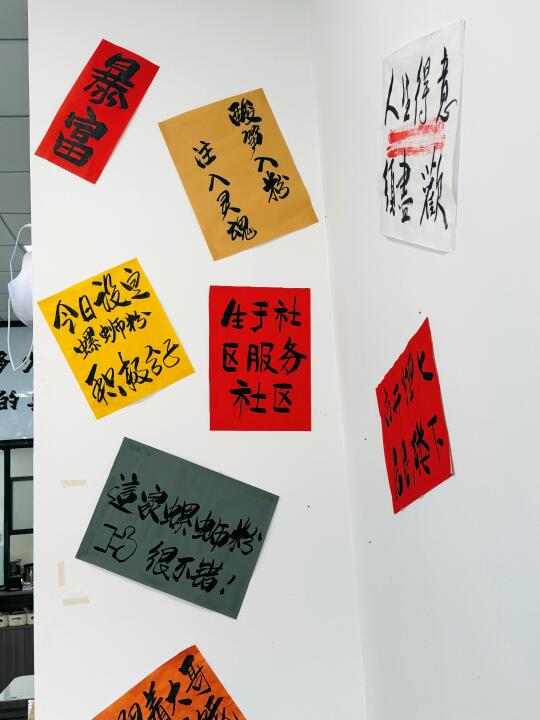 暴富
酸笋入粉
注入灵魂
人生得意
须盡歡
今日设定
螺蛳粉
积极分子
生于社
区服务
社区
這家螺蛳粉
很不错!
着大哥